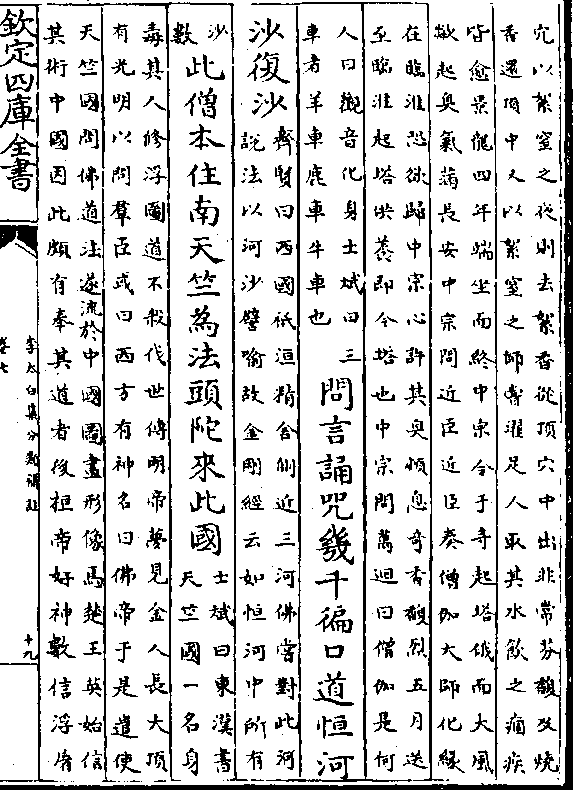 穴以絮窒之夜則去絮香從頂穴中出非常芬馥及燒
香還頂中又以絮窒之師嘗濯足人取其水飲之痼疾
皆愈景龍四年端坐而終中宗令于寺起塔俄而大風
欻起臭氣滿長安中宗問近臣近臣奏僧伽大師化緣
在臨淮恐欲歸中宗心許其臭頓息奇香馥烈五月送
至臨淮起塔供養即今塔也中宗問萬迴曰僧伽是何
人曰觀音化身士贇曰三
車者羊車鹿車牛車也
問言誦咒幾千徧口道恒河
沙復沙
齊賢曰西國祇洹精舍側近三河佛嘗對此河
說法以河沙譬喻故金剛經云如恒河中所有
沙
數
此僧本住南天竺為法頭陀來此國
士贇曰東漢書
天竺國一名身
毒其人修浮圖道不殺伐世傳明帝夢見金人長大頂
有光明以問羣臣或曰西方有神名曰佛帝于是遣使
天竺國問佛道法遂流於中國圖畫形像焉楚王英始信
其術中國因此頗有奉其道者後桓帝好神數信浮屠
欽定四庫全書
李太白集分類補註
卷七
十九